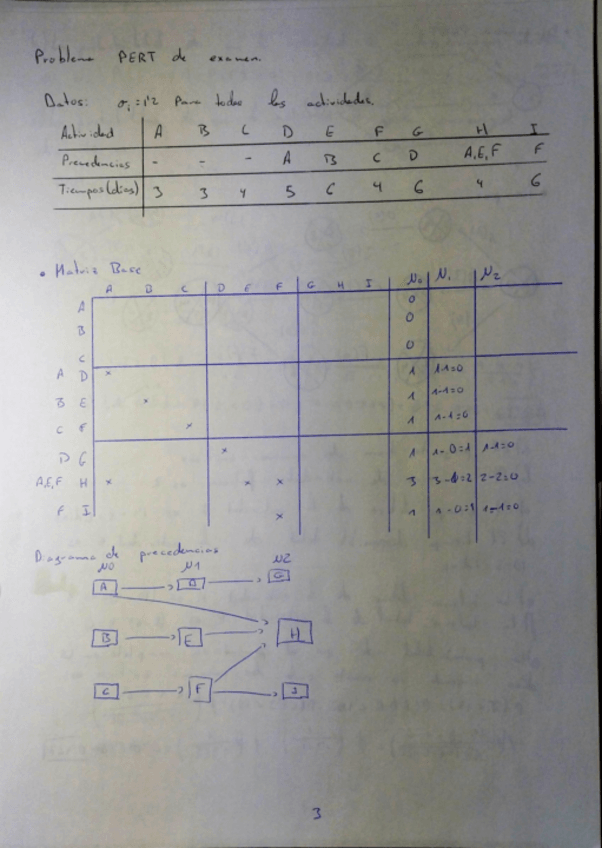 Problema PERT de examen.
Datos: σi = 1'2 para todas las actividades.
Actividad A B C D E F G H I
Precedencias - - - A B C D A,E,F F
Tiempos (días) 3 3 4 5 6 4 6 4 6
• Matriz Base
A B C D E F G H I N0 N1 N2
A 0
B 0
C 0
A D x 1 1-1=0
B E x 1 1-1=0
C F x 1 1-1=0
D G x 1 1-0=1 1-1=0
A,E,F H x x x 3 3-1=2 2-2=0
F I x 1 1-0=1 1-1=0
Diagrama de precedencias
N0 N1 N2
A D G
B E H
C F I
3